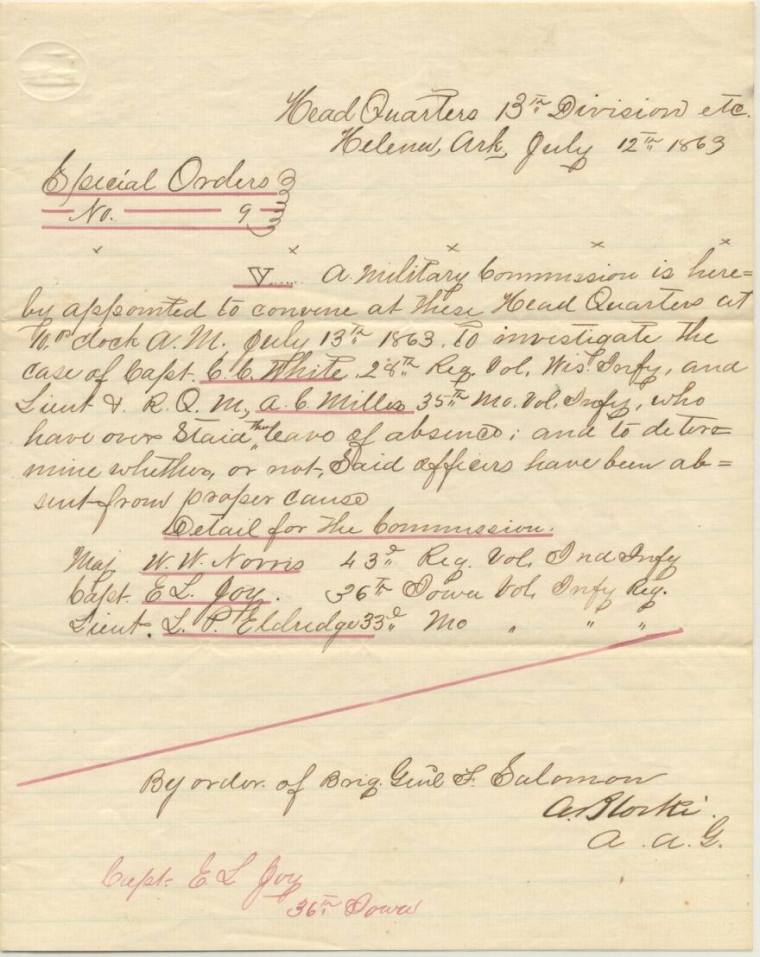 Head Quarters 13th Division etc.
Helena, Ark, July 12th 1863
Special Orders
No. 9
x x x x x
V..... A Military Commission is here=
by appointed to convene at these Head Quarters at
10,00 clock A.M. July 13th 1863. to investigate the
case of Capt. C. C. White 28th Reg. Vol. Wis. Infy, and
Lieut & R. Q. M, A. C. Miller 35th Mo. Vol. Infy, who
have over Staid their leave of absence; and to deter=
mine whether, or not, Said officers have been ab=
sent from proper cause
Detail for the Commission.
Maj W. W. Norris 43d Reg. Vol. Ind Infy
Capt. E L. Joy. 36th Iowa Vol. Infy Reg.
Lieut. L. P. Eldredge 33d Mo " " "
By order of Brig. Genl F. Salomon
A. Blocki.
A. A. G.
Capt. E L Joy
36th Iowa